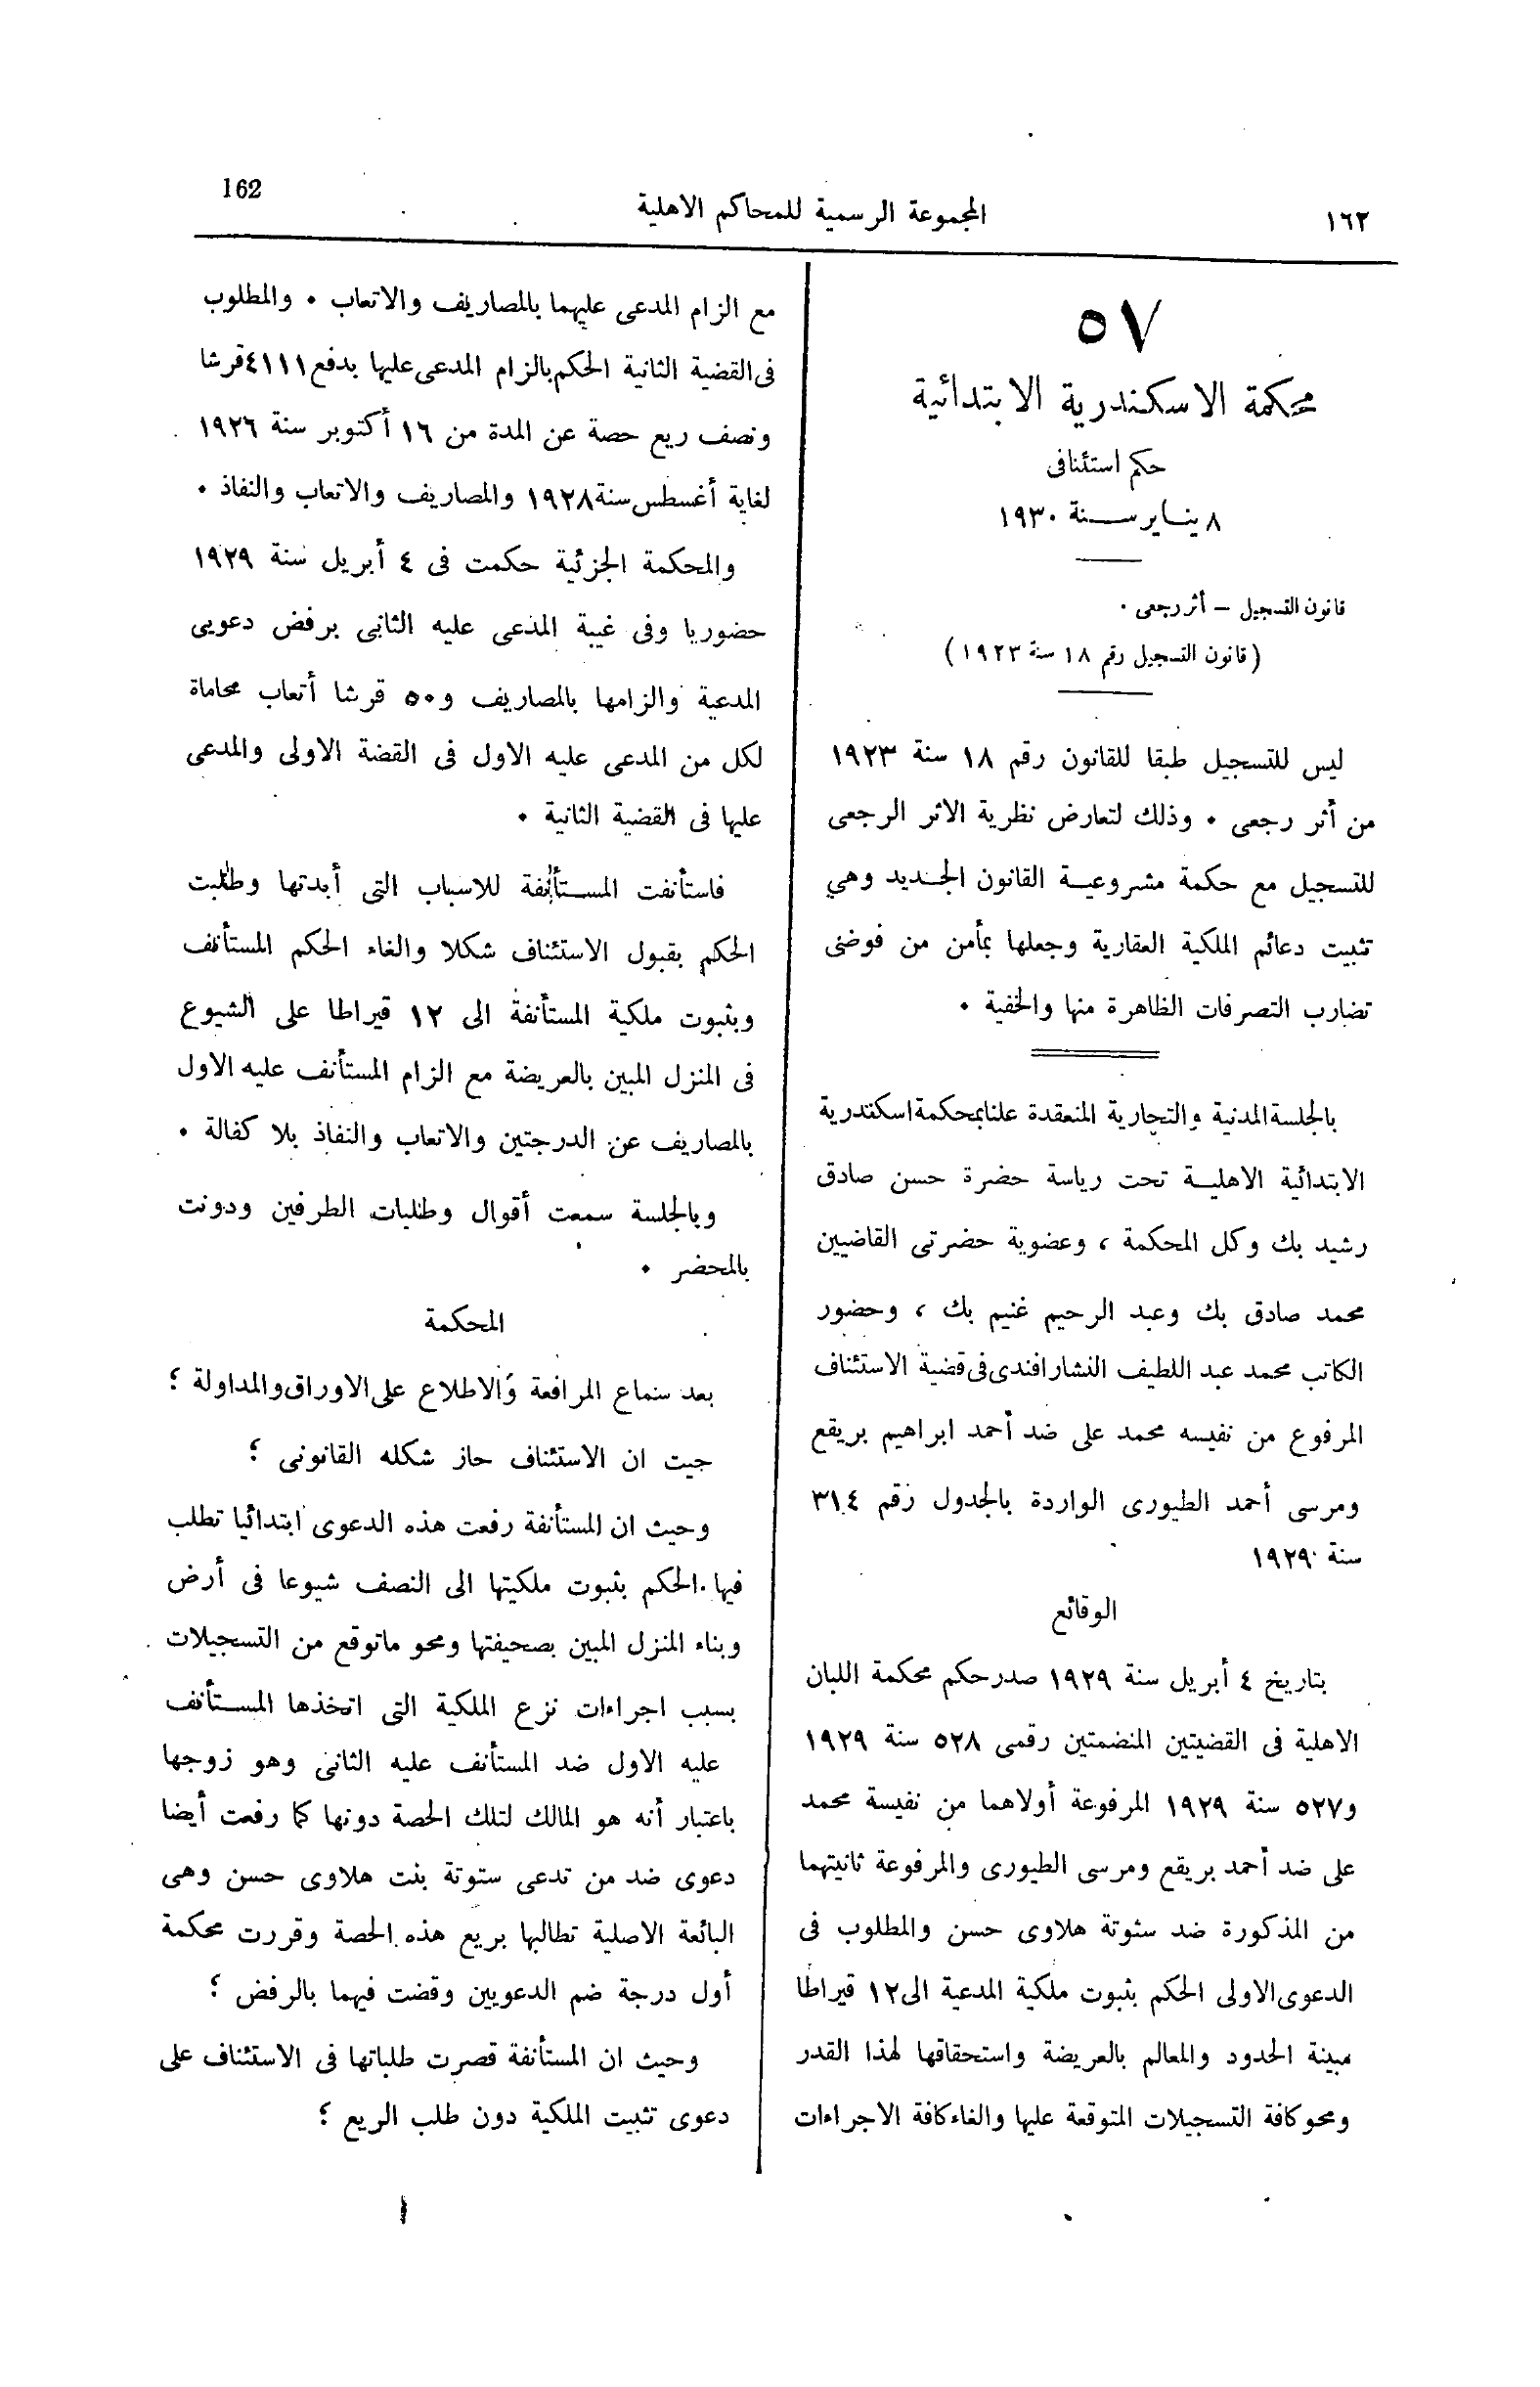 ١٦٢
المجموعة الرسمية للمحاكم الاهلية
162
٥٧
محكمة الاسكندرية الابتدائية
حكم استئنافى
٨ يناير سنة ١٩٣٠
قانون التسجيل — أثر رجعى .
(قانون التسجيل رقم ١٨ سنة ١٩٢٣)
ليس للتسجيل طبقا للقانون رقم ١٨ سنة ١٩٢٣
من أثر رجعى . وذلك لتعارض نظرية الاثر الرجعى
للتسجيل مع حكمة مشروعية القانون الجديد وهي
تثبيت دعائم الملكية العقارية وجعلها بمأمن من فوضى
تضارب التصرفات الظاهرة منها والخفية .
بالجلسة المدنية والتجارية المنعقدة علنا بمحكمة اسكندرية
الابتدائية الاهلية تحت رياسة حضرة حسن صادق
رشيد بك وكل المحكمة ، وعضوية حضرتى القاضيين
محمد صادق بك وعبد الرحيم غنيم بك ، وحضور
الكاتب محمد عبد اللطيف النشار افندى فى قضية الاستئناف
المرفوع من نفيسه محمد على ضد أحمد ابراهيم بريقع
ومرسى أحمد الطيورى الواردة بالجدول رقم ٣١٤
سنة ١٩٢٩
الوقائع
بتاريخ ٤ أبريل سنة ١٩٢٩ صدر حكم محكمة اللبان
الاهلية فى القضيتين المنضمتين رقمى ٥٢٨ سنة ١٩٢٩
و٥٢٧ سنة ١٩٢٩ المرفوعة أولاهما من نفيسة محمد
على ضد أحمد بريقع ومرسى الطيورى والمرفوعة ثانيتهما
من المذكورة ضد ستوتة هلاوى حسن والمطلوب فى
الدعوى الاولى الحكم بثبوت ملكية المدعية الى ١٢ قيراطا
مبينة الحدود والمعالم بالعريضة واستحقاقها لهذا القدر
ومحو كافة التسجيلات المتوقعة عليها والغاء كافة الاجراءات
مع الزام المدعى عليهما بالمصاريف والاتعاب . والمطلوب
فى القضية الثانية الحكم بالزام المدعى عليها بدفع ٤١١١ قرشا
ونصف ريع حصة عن المدة من ١٦ أكتوبر سنة ١٩٢٦
لغاية أغسطس سنة ١٩٢٨ والمصاريف والاتعاب والنفاذ .
والمحكمة الجزئية حكمت فى ٤ أبريل سنة ١٩٢٩
حضوريا وفى غيبة المدعى عليه الثانى برفض دعويى
المدعية والزامها بالمصاريف و٥٠ قرشا أتعاب محاماة
لكل من المدعى عليه الاول فى القضة الاولى والمدعى
عليها فى القضية الثانية .
فاستأنفت المستأنفة للاسباب التى أبدتها وطلبت
الحكم بقبول الاستئناف شكلا والغاء الحكم المستأنف
وبثبوت ملكية المستأنفة الى ١٢ قيراطا على الشيوع
فى المنزل المبين بالعريضة مع الزام المستأنف عليه الاول
بالمصاريف عن الدرجتين والاتعاب والنفاذ بلا كفالة .
وبالجلسة سمعت أقوال وطلبات الطرفين ودونت
بالمحضر .
المحكمة
بعد سماع المرافعة والاطلاع على الاوراق والمداولة ؛
حيث ان الاستئناف حاز شكله القانونى ؛
وحيث ان المستأنفة رفعت هذه الدعوى ابتدائيا تطلب
فيها الحكم بثبوت ملكيتها الى النصف شيوعا فى أرض
وبناء المنزل المبين بصحيفتها ومحو ماتوقع من التسجيلات
بسبب اجراءات نزع الملكية التى اتخذها المستأنف
عليه الاول ضد المستأنف عليه الثانى وهو زوجها
باعتبار أنه هو المالك لتلك الحصة دونها كما رفعت أيضا
دعوى ضد من تدعى ستوتة بنت هلاوى حسن وهى
البائعة الاصلية تطالبها بريع هذه الحصة وقررت محكمة
أول درجة ضم الدعويين وقضت فيهما بالرفض ؛
وحيث ان المستأنفة قصرت طلباتها فى الاستئناف على
دعوى تثبيت الملكية دون طلب الريع ؛